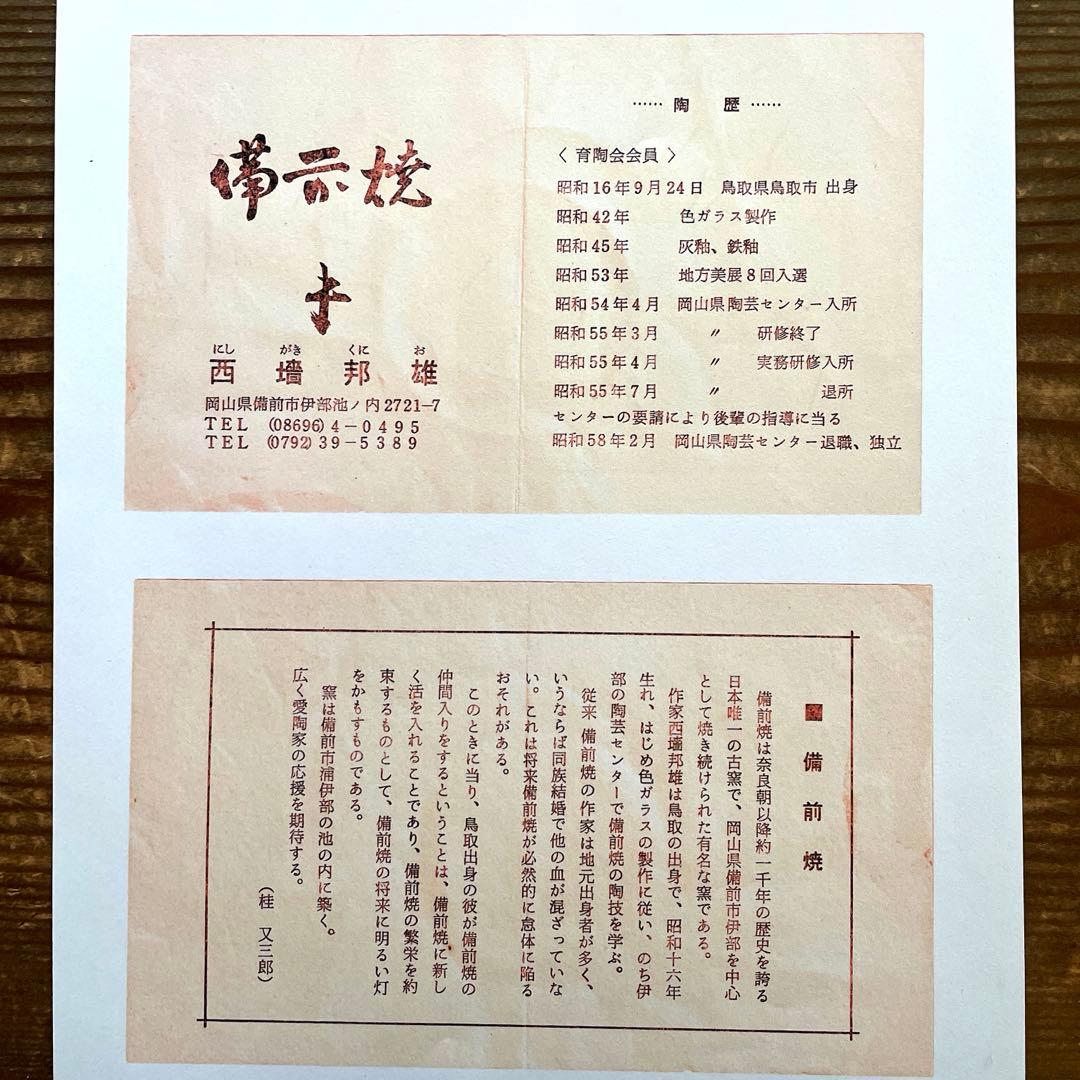 備前焼
にし がき くに お
西墻邦雄
岡山県備前市伊部池ノ内2721-7
TEL (08696)4-0495
TEL (0792)39-5389
……陶歴……
〈育陶会会員〉
昭和16年9月24日 鳥取県鳥取市 出身
昭和42年 色ガラス製作
昭和45年 灰釉、鉄釉
昭和53年 地方美展8回入選
昭和54年4月 岡山県陶芸センター入所
昭和55年3月 〃 研修終了
昭和55年4月 〃 実務研修入所
昭和55年7月 〃 退所
センターの要請により後輩の指導に当る
昭和58年2月 岡山県陶芸センター退職、独立
■備前焼
備前焼は奈良朝以降約一千年の歴史を誇る
日本唯一の古窯で、岡山県備前市伊部を中心
として焼き続けられた有名な窯である。
作家西墻邦雄は鳥取の出身で、昭和十六年
生れ、はじめ色ガラスの製作に従い、のち伊
部の陶芸センターで備前焼の陶技を学ぶ。
従来 備前焼の作家は地元出身者が多く、
いうならば同族結婚で他の血が混ざっていな
い。これは将来備前焼が必然的に怠体に陥る
おそれがある。
このときに当り、鳥取出身の彼が備前焼の
仲間入りをするということは、備前焼に新し
く活を入れることであり、備前焼の繁栄を約
束するものとして、備前焼の将来に明るい灯
をかもすものである。
窯は備前市浦伊部の池の内に築く。
広く愛陶家の応援を期待する。
(桂 又三郎)